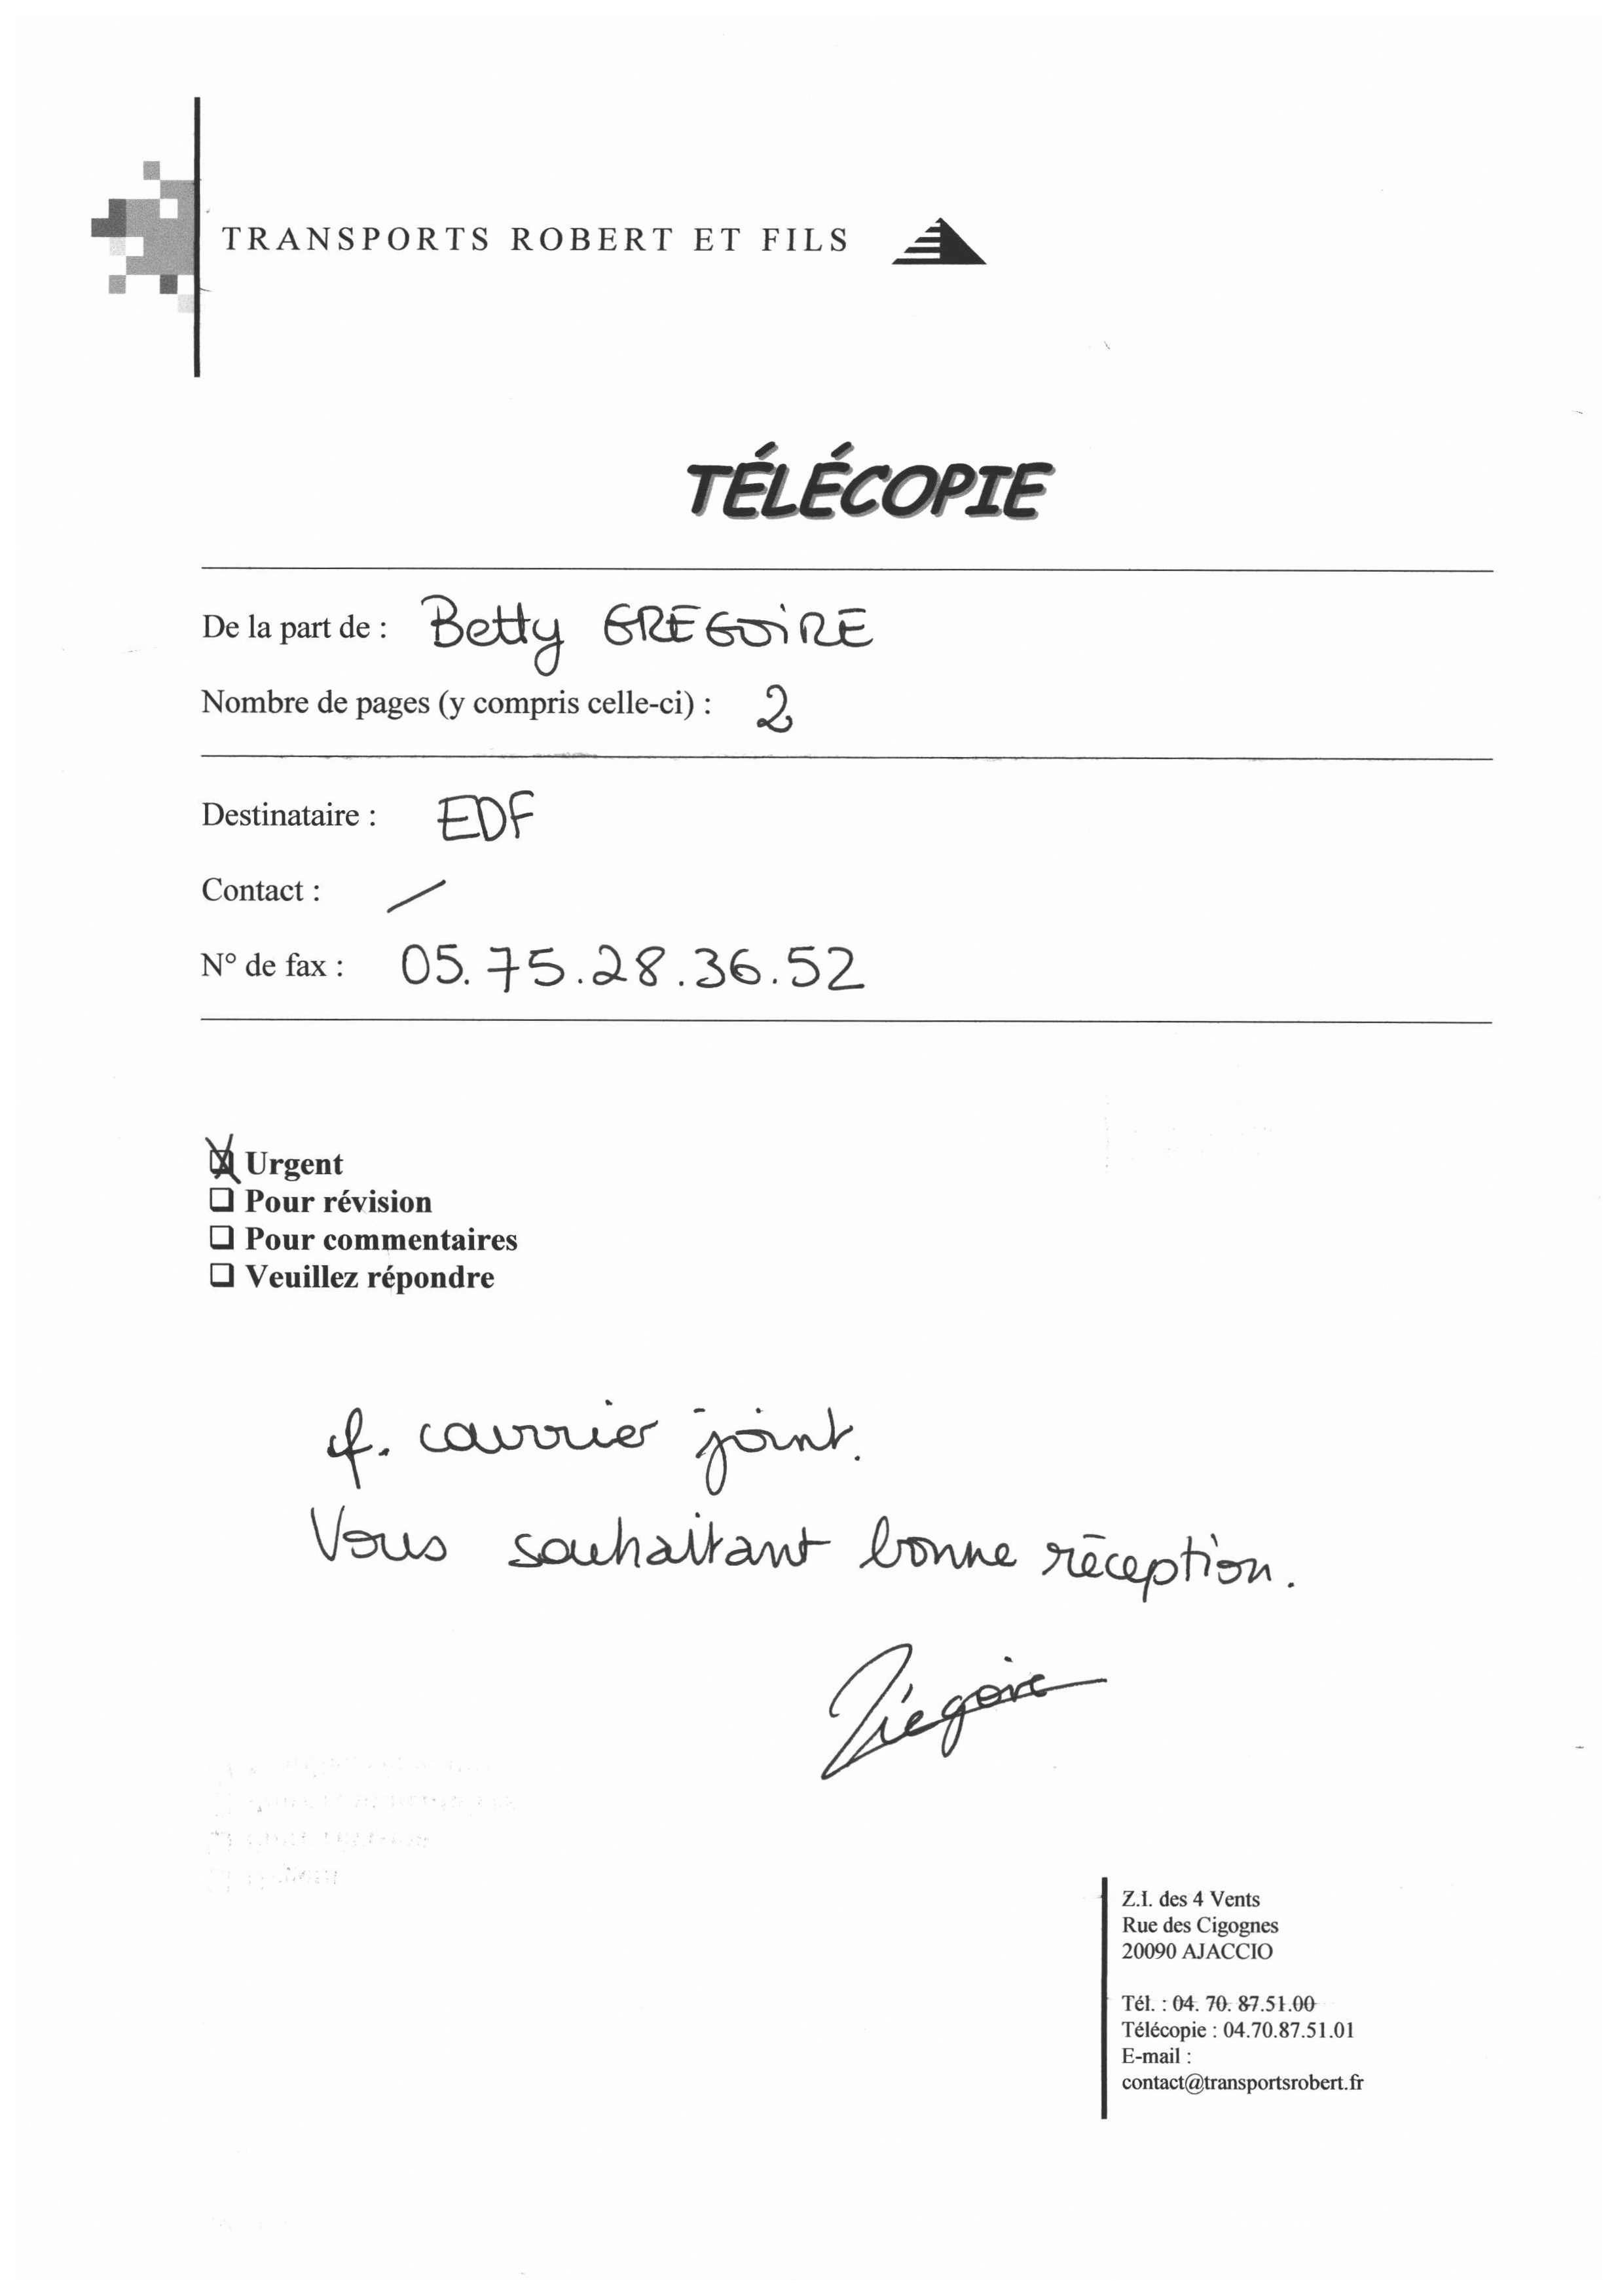 TRANSPORTS ROBERT ET FILS
TÉLÉCOPIE
De la part de : Betty GREGOIRE
Nombre de pages (y compris celle-ci) : 2
Destinataire : EDF
Contact : /
N° de fax : 05.75.28.36.52
Urgent
Pour révision
Pour commentaires
Veuillez répondre
cf. courrier joint.
Vous souhaitant bonne réception.
Grégoire
Z.I. des 4 Vents
Rue des Cigognes
20090 AJACCIO
Tél. : 04. 70. 87.51.00
Télécopie : 04.70.87.51.01
E-mail :
contact@transportsrobert.fr